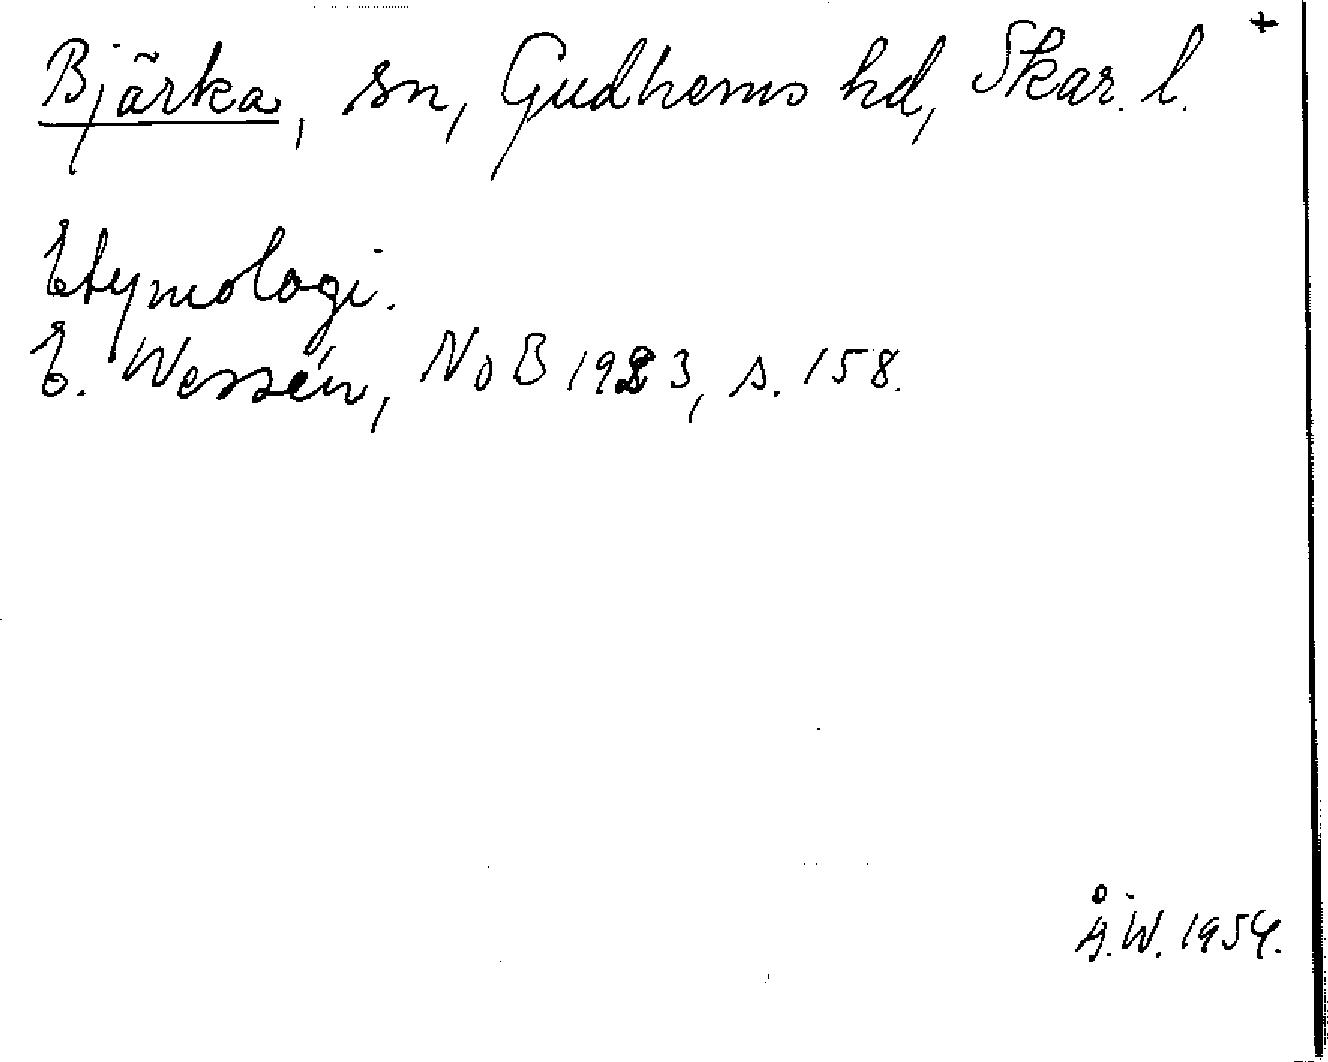 Bjärka, sn, Gudhems hd, Skar. l. +
Etymologi.
E. Wessén, NoB 1923, s. 158.
Å.W. 1954.